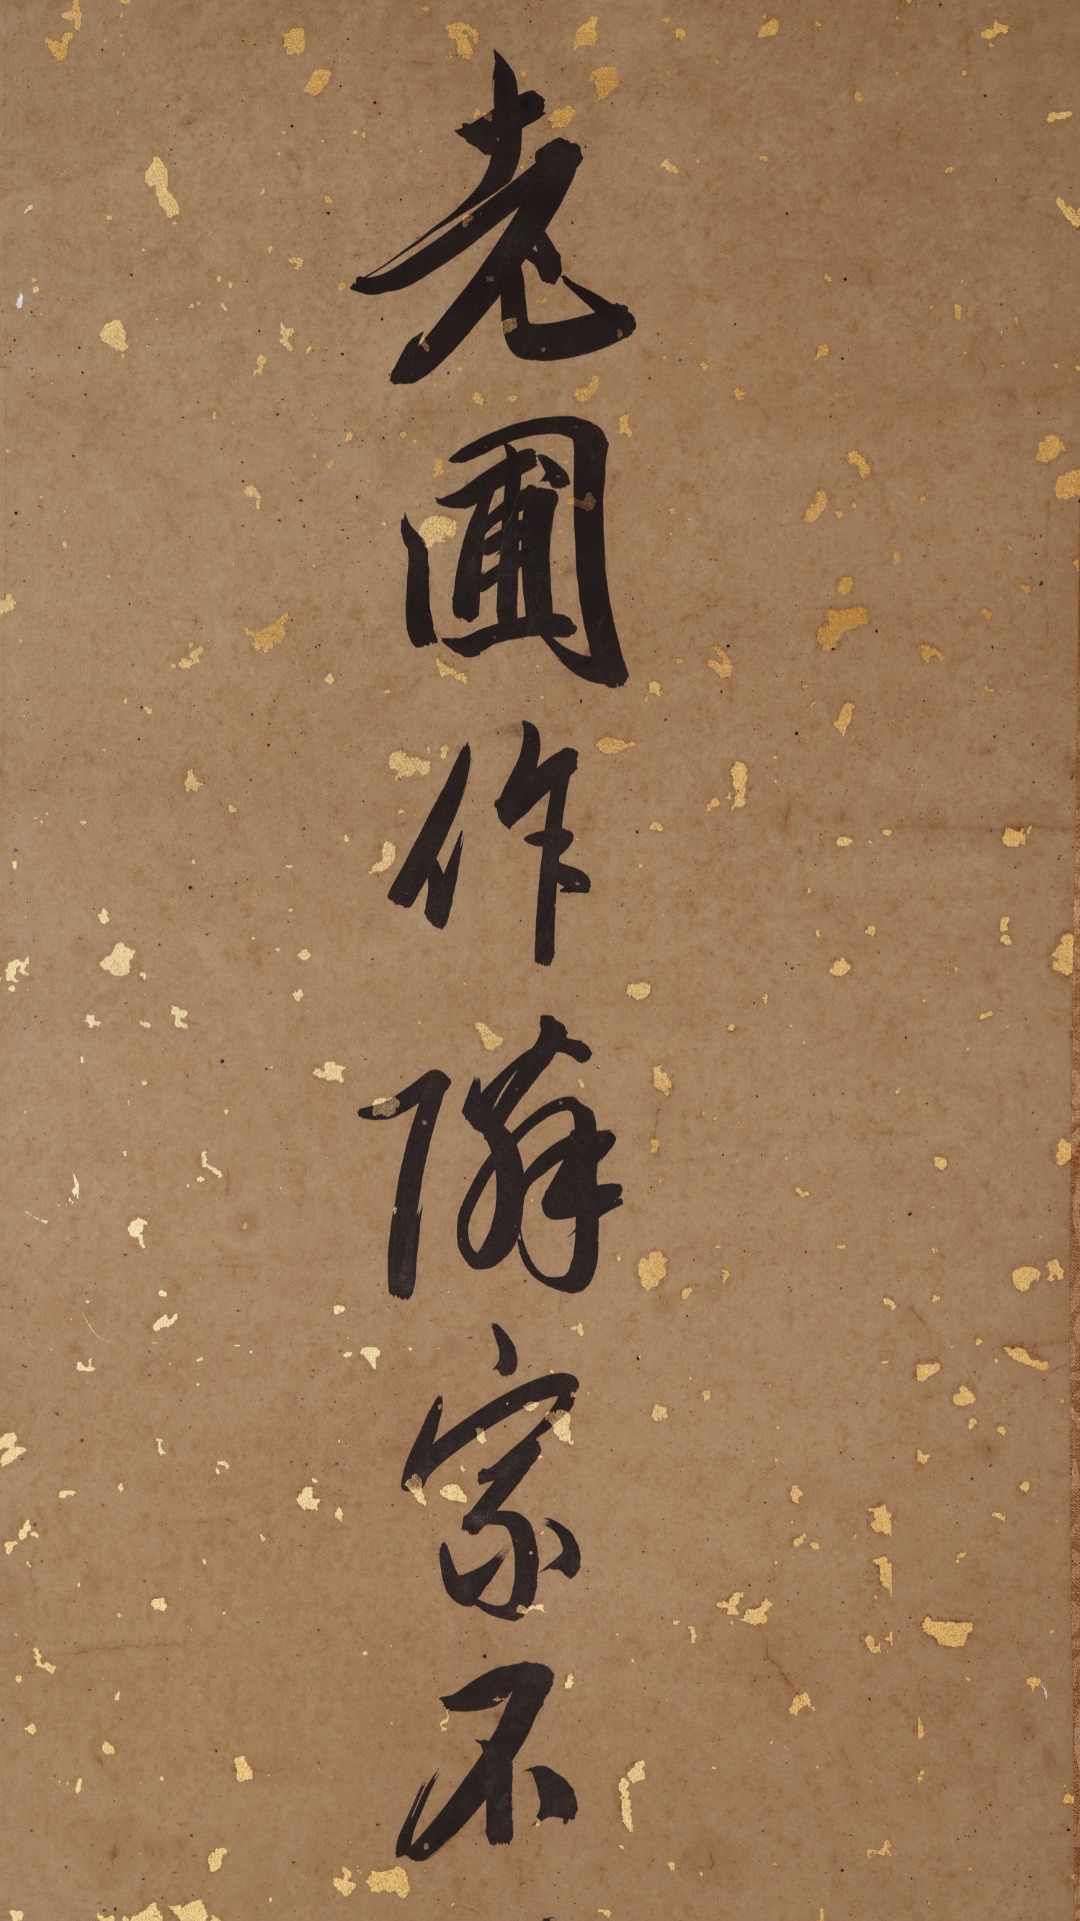 老圃作隣家不